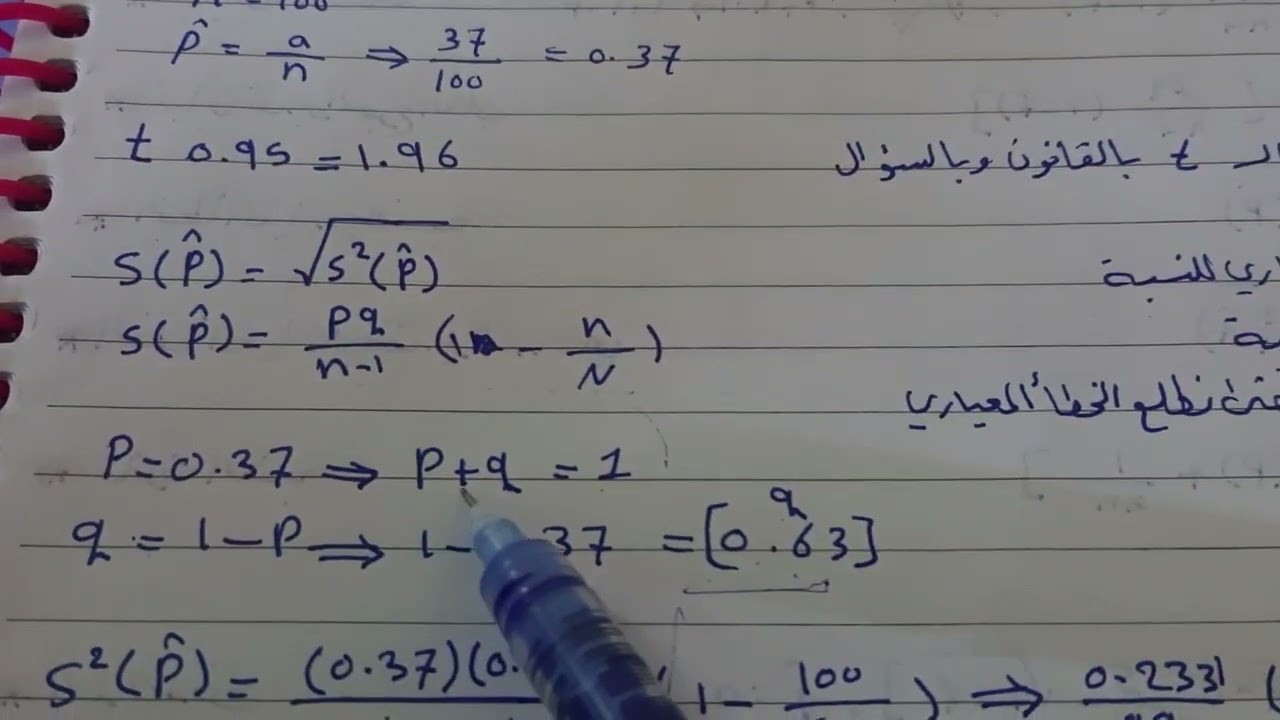 = 100
p̂ = a/n ⇒ 37/100 = 0.37
t 0.95 = 1.96
t بالقانون وبالسؤال
S(p̂) = √S²(p̂)
للنسبة
S(p̂) = pq/n-1 (1 - n/N)
نطلع الخطأ المعياري
P = 0.37 ⇒ P+q = 1
q
q = 1-P ⇒ 1- 37 = [0.63]
S²(p̂) = (0.37)(0. 1 - 100 ) ⇒ 0.2331 (